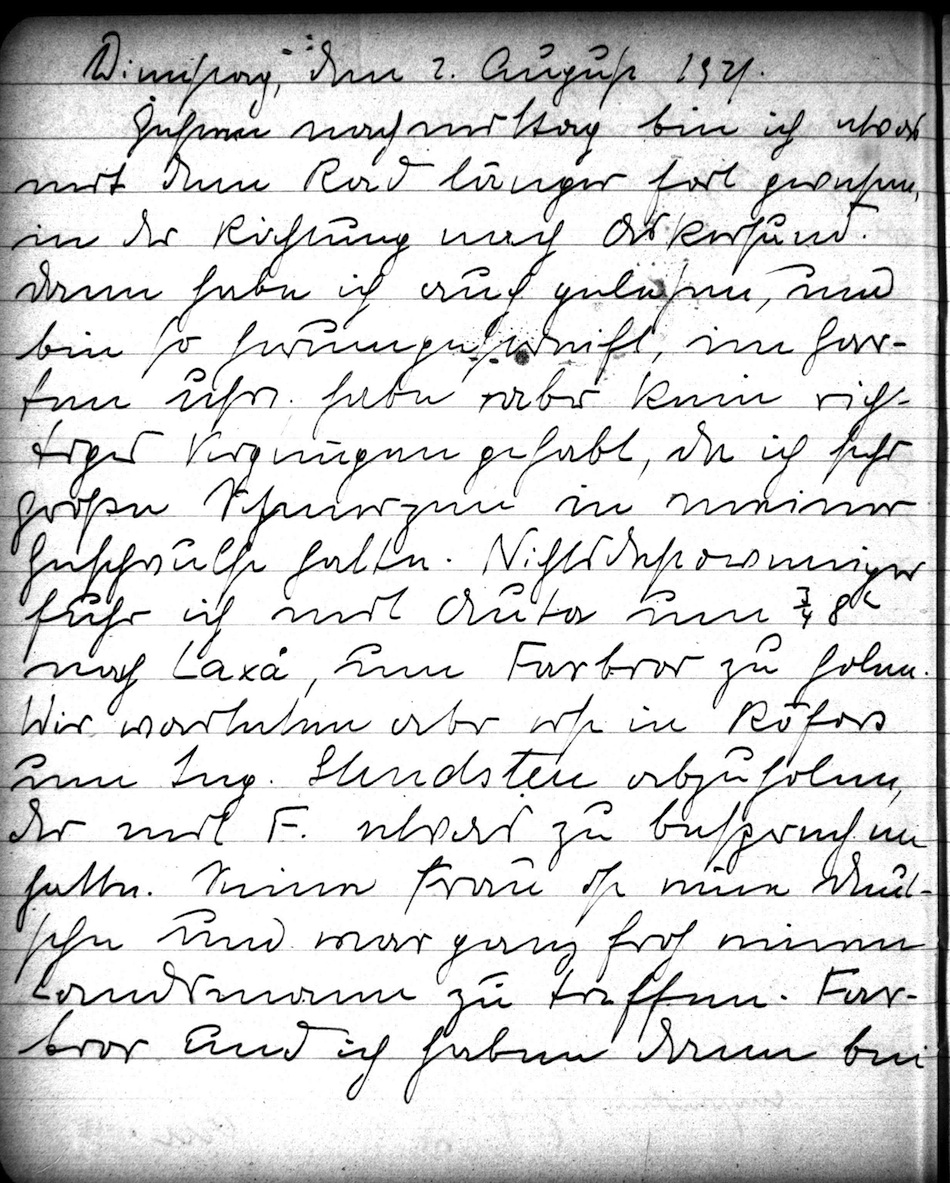 Dienstag, den 2. August 1921.
Gestern nachmittag bin ich etwas
mit dem Rad länger fort gewesen,
in der Richtung nach Askersund.
Dann habe ich auch gelesen, und
bin so herumgestreift, im Gar-
ten usw. habe aber kein rich-
tiges Vergnügen gehabt, da ich sehr
große Schmerzen in meiner
Geschwulst hatte. Nichtsdestoweniger
fuhr ich mit Auto um ¾ 8h
nach Laxå, um Farbror zu holen.
Wir warteten aber erst in Röfors
um Ing. Stendsten abzuholen,
der mit F. etwas zu besprechen
hatte. Seine Frau ist eine Deut-
sche und war ganz froh einen
Landsmann zu treffen. Far-
bror und ich haben dann bei